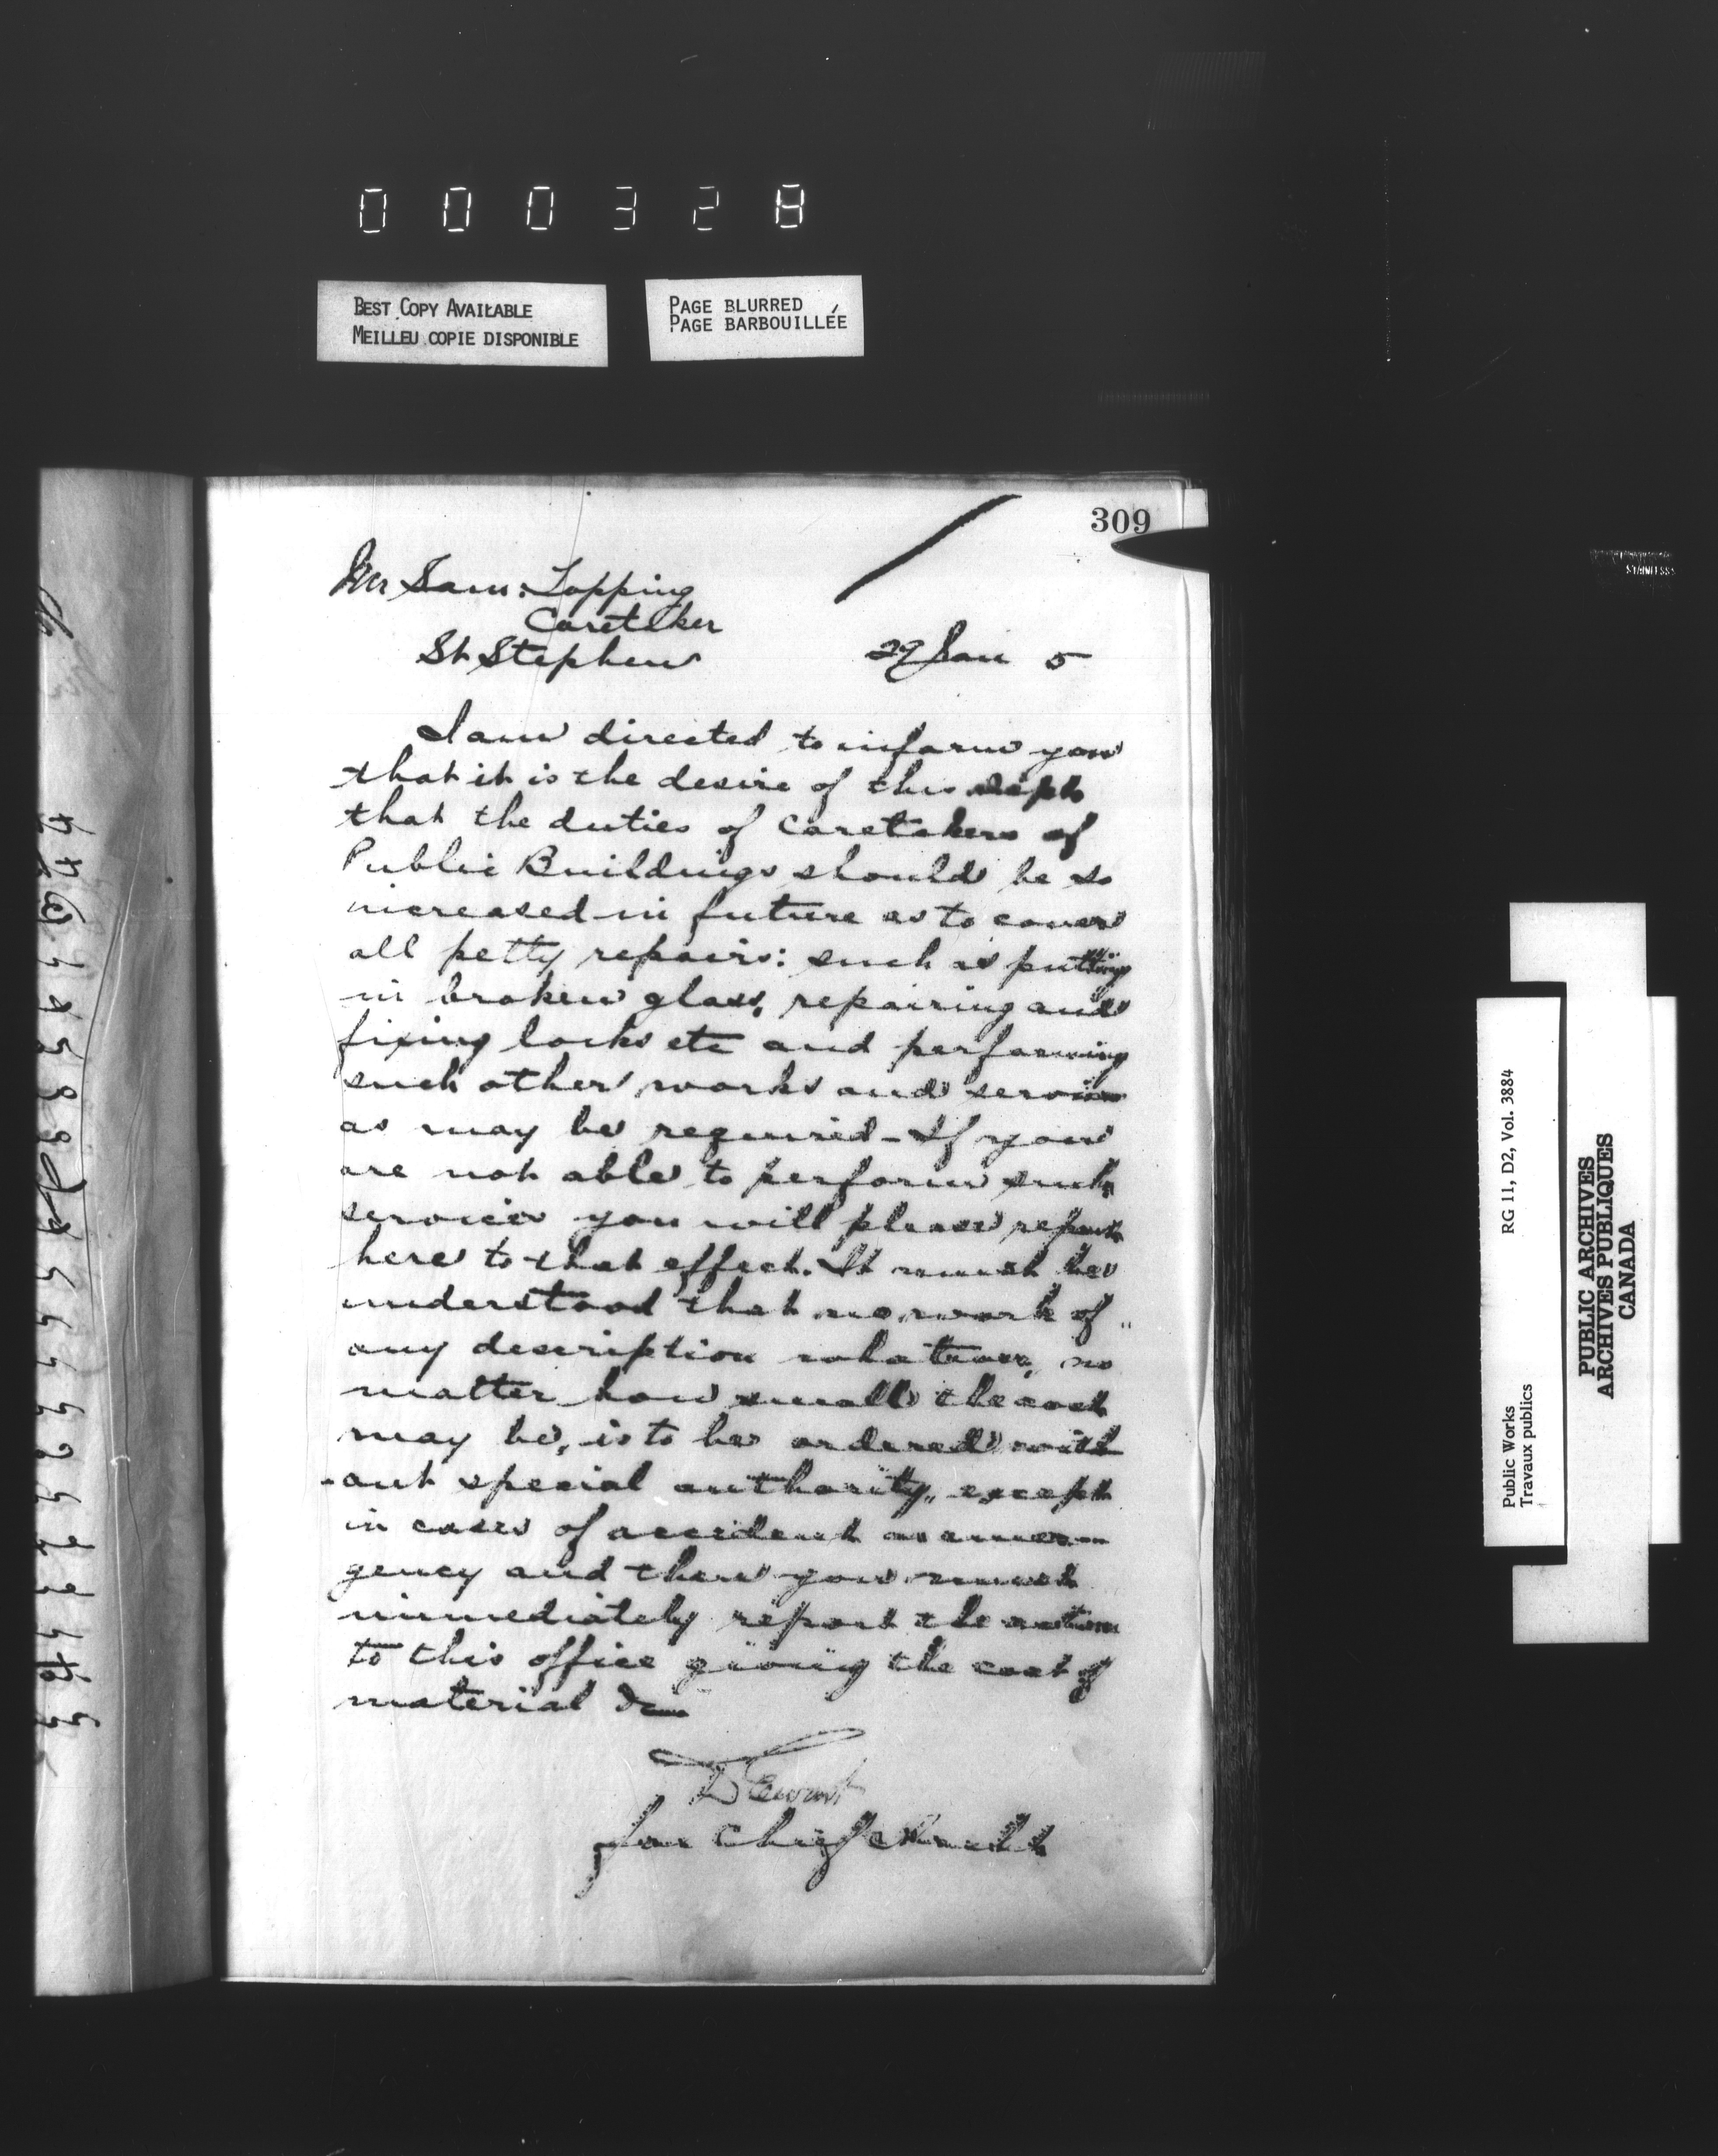 000328
BEST COPY AVAILABLE
MEILLEU COPIE DISPONIBLE
PAGE BLURRED
PAGE BARBOUILLÉE
309
Mr Sam: Topping
Caretaker
St Stephen
29 Jan 5
I am directed to inform you
that it is the desire of this dept
that the duties of caretakers of
Public Buildings should be so
increased in future as to cover
all petty repairs: such as putting
in broken glass, repairing and
fixing locks etc and performing
such other works and services
as may be required - If you
are not able to perform such
services you will please report
here to that effect. It must be
understood that no work of
any description whatever, no
matter how small the cost
may be, is to be ordered with
-out special authority, except
in cases of accident or emer-
gency and then you must
immediately report the action
to this office giving the cost of
material &c
D Ewart
for Chief Archt
STAINLESS
Public Works
Travaux publics
RG 11, D2, Vol. 3884
PUBLIC ARCHIVES
ARCHIVES PUBLIQUES
CANADA